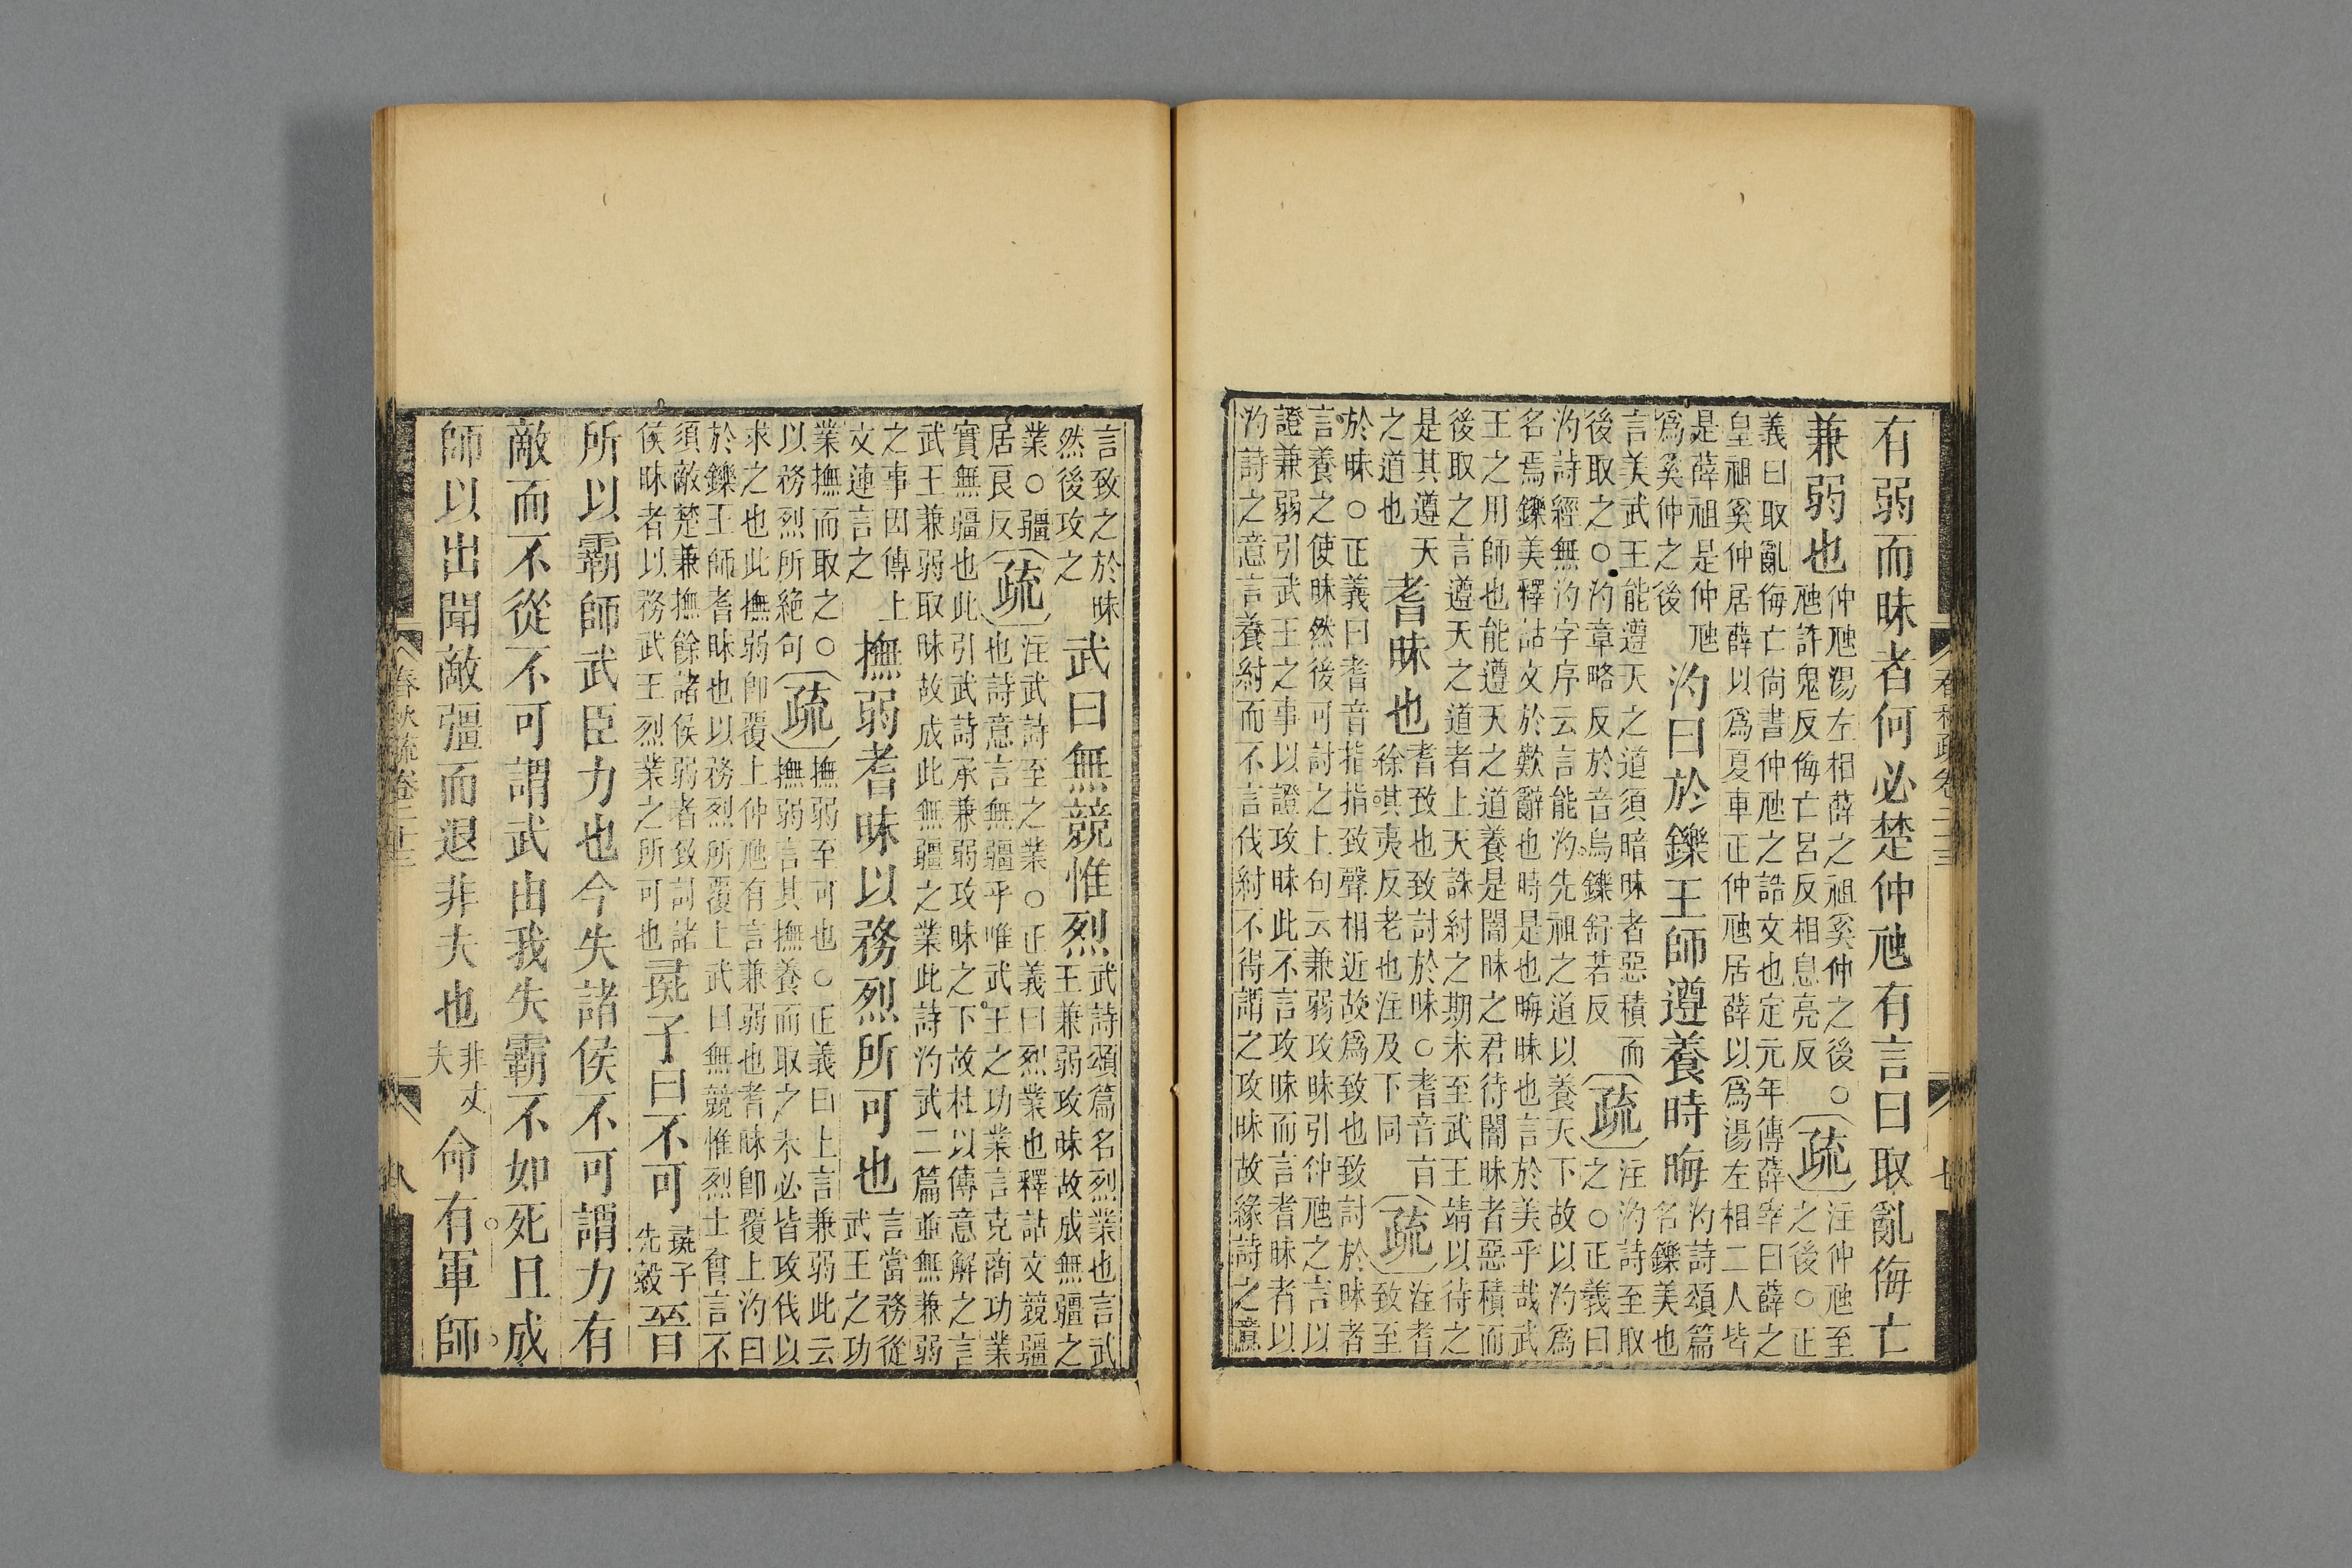 有弱而昧者何必楚仲虺有言曰取亂侮亡
兼弱也
仲虺湯左相薛之祖奚仲之後○
虺許鬼反侮亡呂反相息亮反
疏
注仲虺至
之後○正
義曰取亂侮亡尚書仲虺之誥文也定元年傳薛宰曰薛之
皇祖奚仲居薛以爲夏車正仲虺居薛以爲湯左相二人皆
是薛祖是仲虺
爲奚仲之後
汋曰於鑠王師遵養時晦
汋詩頌篇
名鑠美也
言美武王能遵天之道須暗昧者惡積而
後取之○汋章略反於音烏鑠舒若反
疏
注汋詩至取
之○正義曰
汋詩經無汋字序云言能汋先祖之道以養天下故以汋爲
名焉鑠美釋詁文於歎辭也時是也晦昧也言於美乎哉武
王之用師也能遵天之道養是闇昧之君待闇昧者惡積而
後取之言遵天之道者上天誅紂之期未至武王靖以待之
是其遵天
之道也
耆昧也
耆致也致討於昧○耆音㫖
徐其夷反老也注及下同
疏
注耆
致至
於昧○正義曰耆音指指致聲相近故爲致也致討於昧者
言養之使昧然後可討之上句云兼弱攻昧引仲虺之言以
證兼弱引武王之事以證攻昧此不言攻昧而言耆昧者以
汋詩之意言養紂而不言伐紂不得謂之攻昧故緣詩之意
春秋疏卷二十三
七
言致之於昧
然後攻之
武曰無競惟烈
武詩頌篇名烈業也言武
王兼弱攻昧故成無疆之
業○疆
居良反
疏
注武詩至之業○正義曰烈業也釋詁文競疆
也詩意言無疆乎唯武王之功業言克商功業
實無疆也此引武詩承兼弱攻昧之下故杜以傳意解之言
武王兼弱取昧故成此無疆之業此詩汋武二篇並無兼弱
之事因傳上
文連言之
撫弱耆昧以務烈所可也
言當務從
武王之功
業撫而取之○
以務烈所絕句
疏
撫弱至可也○正義曰上言兼弱此云
撫弱言其撫養而取之未必皆攻伐以
求之也此撫弱卽覆上仲虺有言兼弱也耆昧卽覆上汋曰
於鑠王師耆昧也以務烈所覆上武曰無競惟烈士會言不
須敵楚兼撫餘諸侯弱者致討諸
侯昧者以務武王烈業之所可也
彘子曰不可
彘子
先縠
晉
所以霸師武臣力也今失諸侯不可謂力有
敵而不從不可謂武由我失霸不如死且成
師以出聞敵彊而退非夫也
非丈
夫
命有軍師
春秋疏卷二十三
八